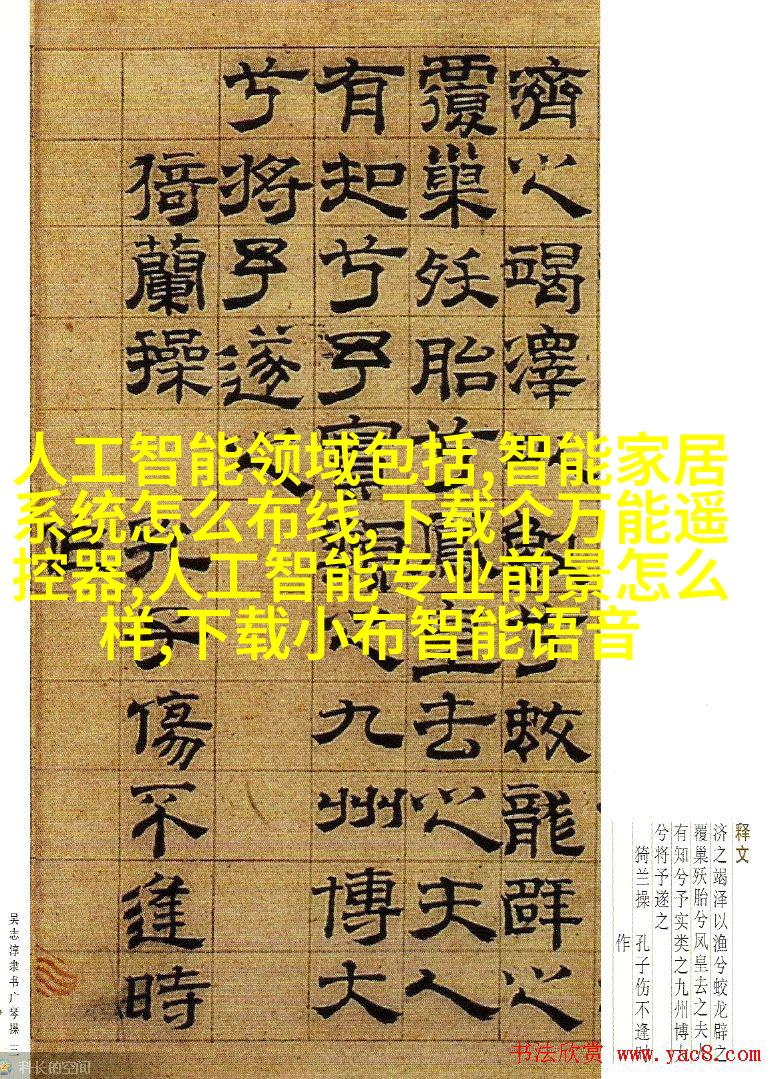 濟之竭澤以漁兮蛟龍辟之
覆巢殀胎兮鳳皇去之夫人
有知兮予實類之九州博大
兮將予遂之
猗蘭操 孔子傷不逢時
人工智能领域包括,智能家居
系统怎么布线,下载个万能遥
控器,人工智能专业前景怎么
样,下载小布智能语音
释文
济之竭泽以渔兮蛟龙辟之
覆巢殀胎兮凤皇去之夫人
有知兮予实类之九州博
兮将予遂之
猗兰操 孔子伤不逢时
作
吴志淳隶书广琴操 三
科长的空间
书法欣赏 www.yac8.com